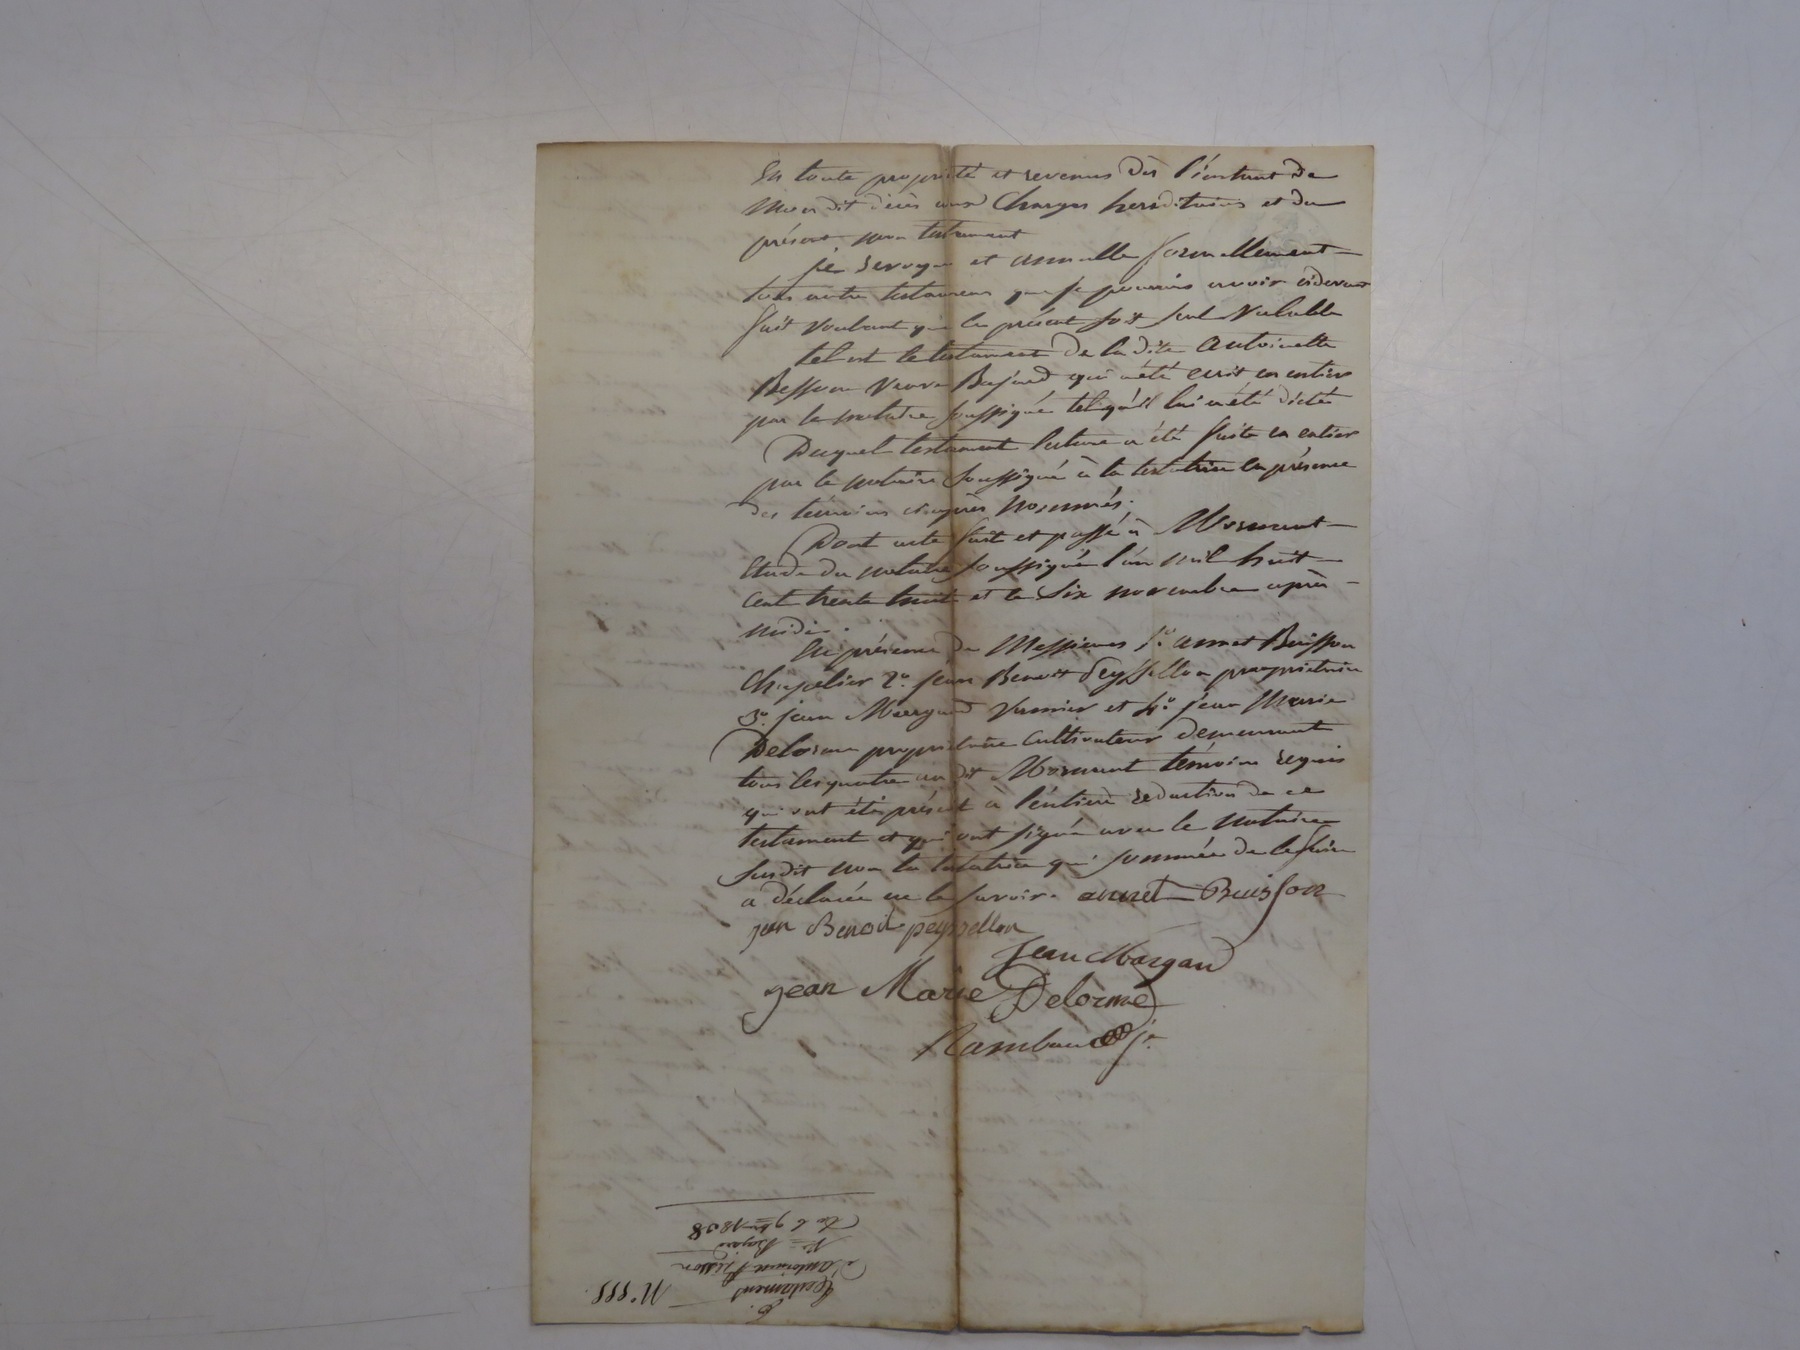 En toute propriété et revenus dès l'instant de
mon dit décès aux charges héréditaires et du
présent mon testament
je revoque et annulle formellement
tous autre testamens que je pourrois avoir cidevant
fait voulant que le présent soit seul valable
tel est le testament de la dite antoinette
Besson veuve Bajard qui a été ecrit en entier
par le notaire soussigné tel qu'il lui a été dicté
Duquel testament lecture a été faite en entier
par le notaire soussigné à la testatrice en présence
des témoins ciaprès nommés;
Dont acte fait et passé à Mornant
Etude du notaire soussigné l'an mil huit
cent trente huit et le six novembre après
midi.
En présence de Messieurs 1º. annet Buisson
Chapelier 2º. jean Benoit Peyssellon propriétaire
3º. jean Margand Vannier et 4º. jean Marie
Delorme propriétaire cultivateur demeurant
tous les quatre au dit Mornant témoins requis
qui ont été présent à l'entière redaction de ce
testament et qui ont signé avec le notaire
susdit non la testatrice qui sommée de le faire
a déclaré ne le savoir. annet Buisson
jean Benoit peyssellon
Jean Margand
jean Marie Delorme
Rambaud jn
Nº 555.
Testament
d'antoinette Besson
Ve Bajard
Du 6 9bre 1838